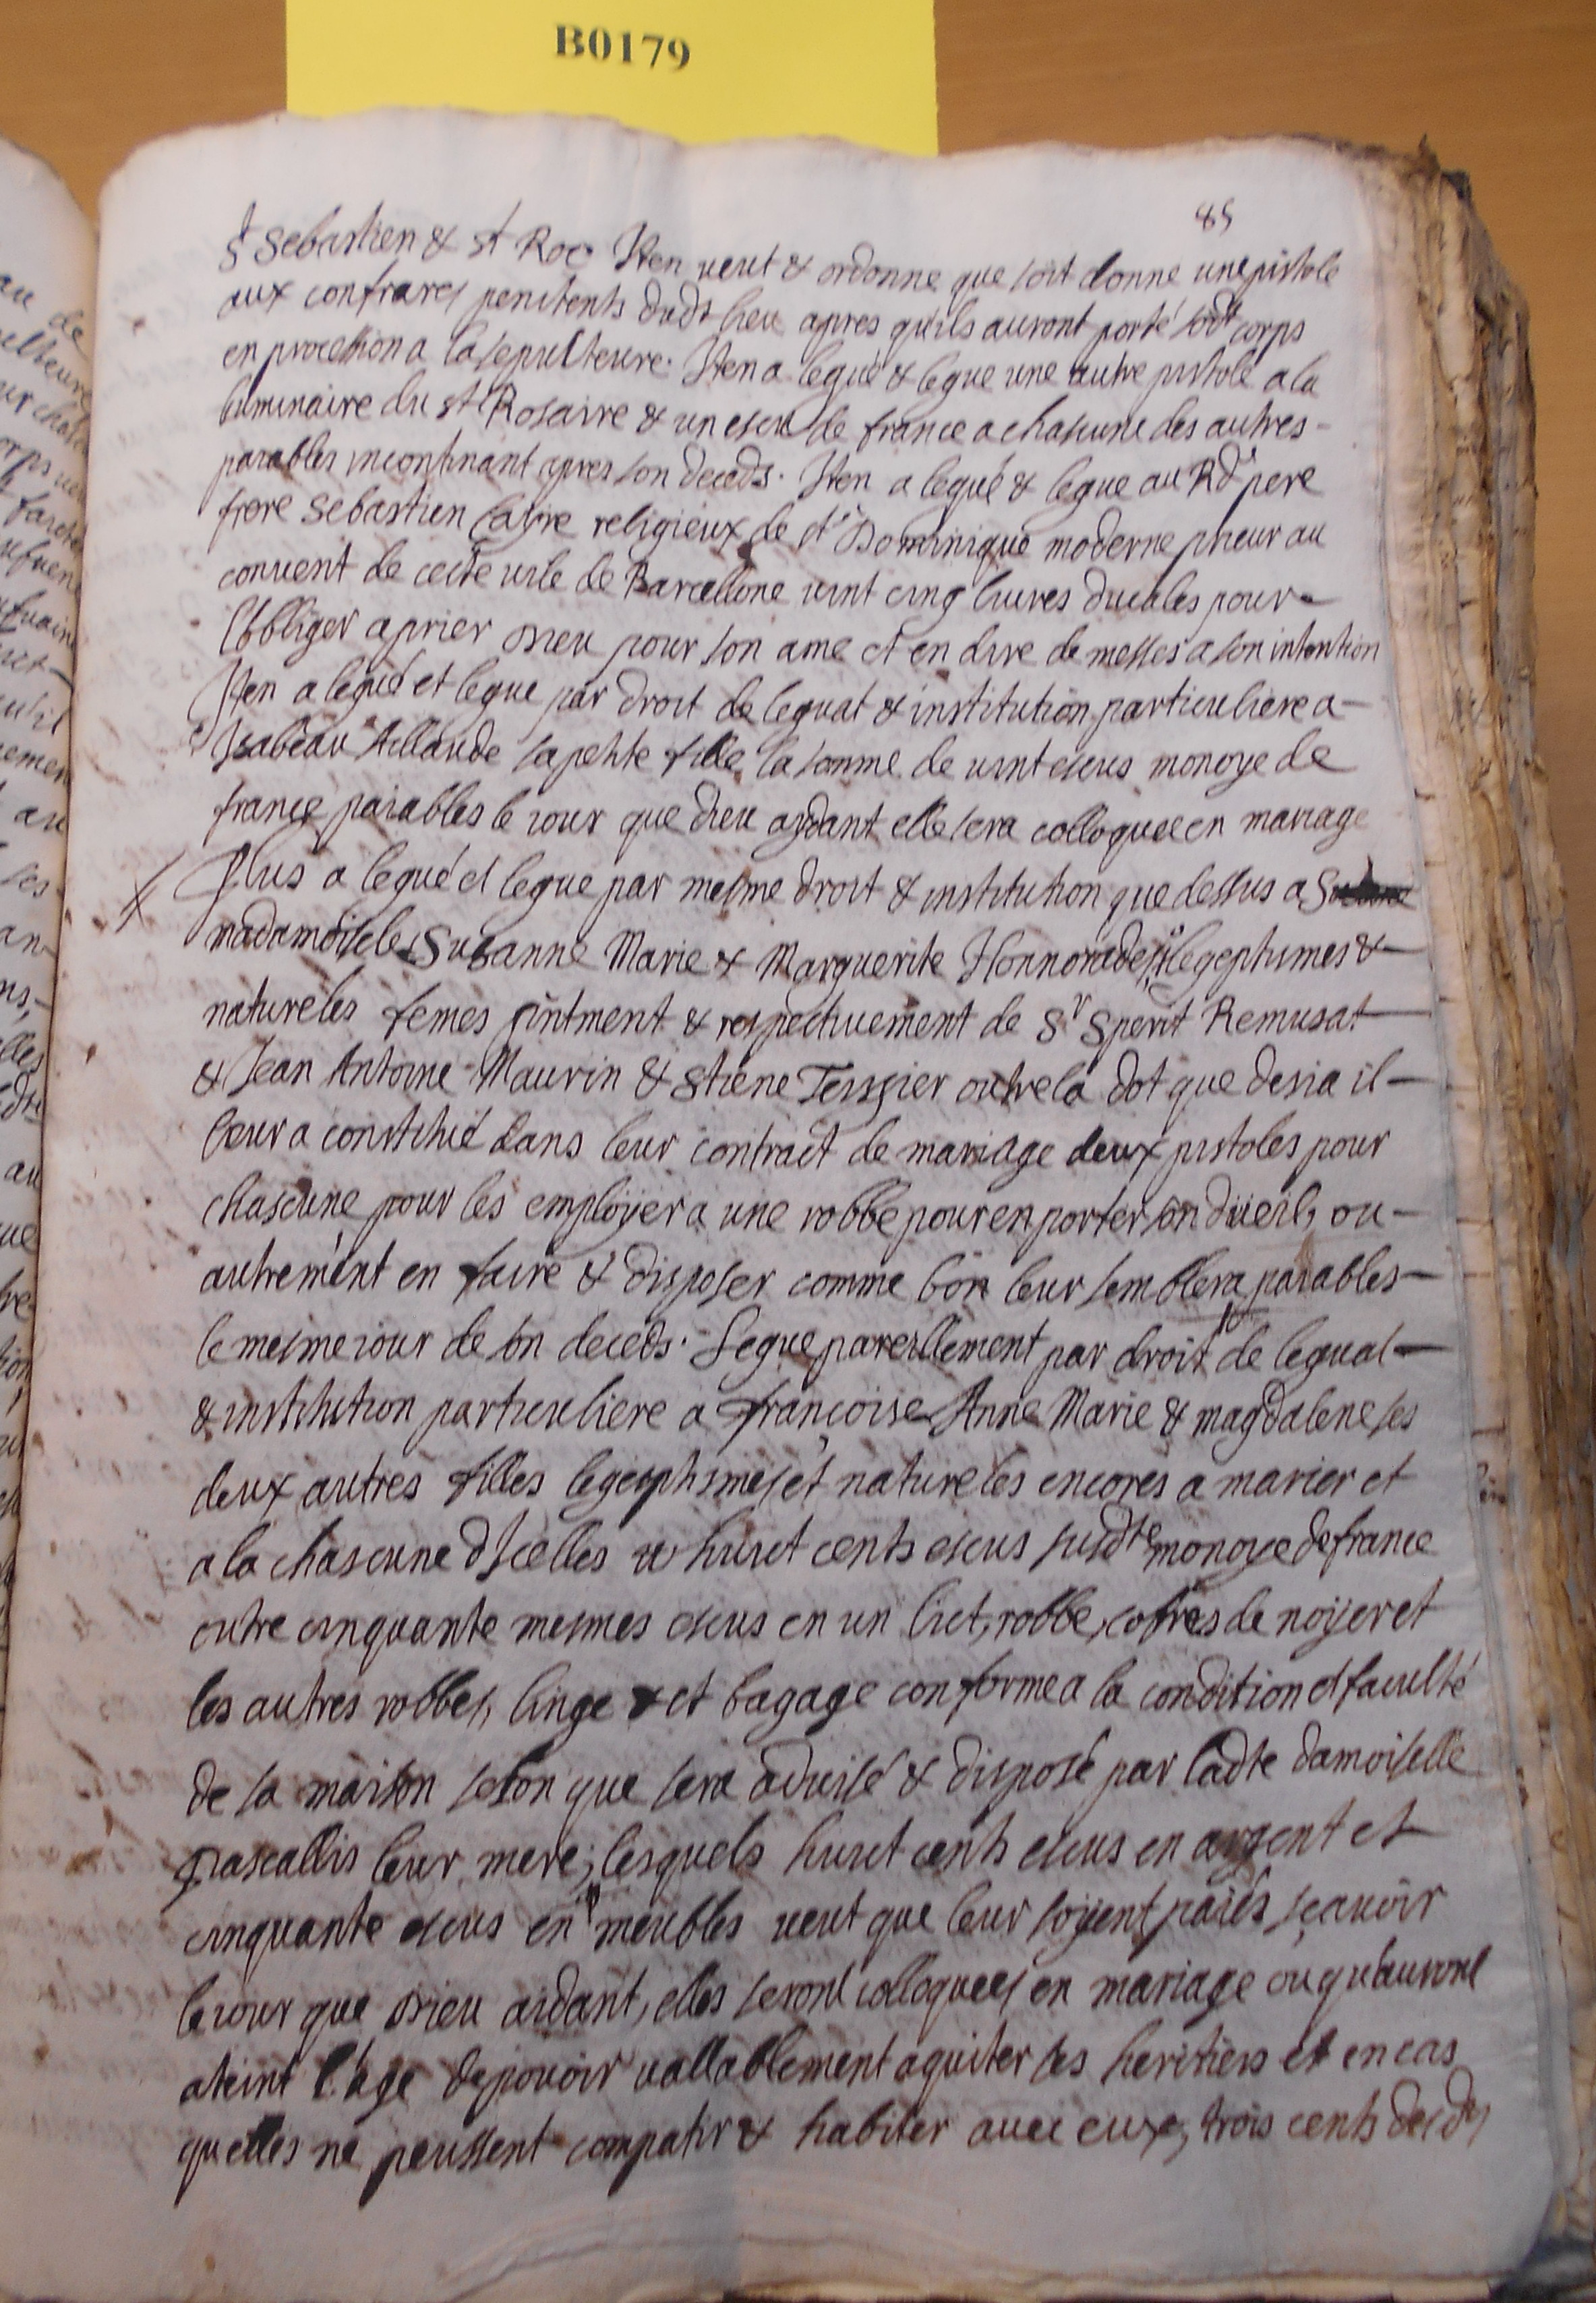 B0179
85
St Sebastien & st Roc Iten veut & ordonne que soit donne une pistole
aux confrares penitents dudt lieu apres quils auront porté sodt corps
en procession a la sepulteure. Iten a legué & legue une autre pistole a la
luminaire du st Rosaire & un escu de france a chascune des autres -
paiables incontinant apres son deceds. Iten a legué & legue au Rd pere
frere Sebastien religieux de st Dominique moderne prieur au
convent de ceste vile de Barcellone vint cinq livres ducales pour
l'obliger a prier Dieu pour son ame et en dire de messes a son intention
Iten a legué et legue par droit de leguat & institution particuliere a -
Isabeau Aillaude sa petite fille la somme de vint escus monoye de
france paiables le iour que dieu aydant elle sera colloquee en mariage
Plus a legué et legue par mesme droit & institution que dessus a
madamoiseles Susanne Marie & Marguerite Honnorade legephimes &
natureles femes & respectivement de Sr Sperit Remusat
& Jean Antoine Maurin & Stiene Teissier outre la dot que desia il -
leur a constitué dans leur contract de mariage deux pistoles pour
chascune pour les employer a une robbe pour en porter son düeil, ou -
autrement en faire & disposer comme bon leur semblera paiables -
le mesme iour de son deceds. Legue pareillement par droit de leguat -
& institution particuliere a francoise Anne Marie & magdalene ses
deux autres filles legephimes et natureles encores a marier et
a la chascune d'Icelles huict cents escus susdte monoye de france
outre cinquante mesmes escus en un lict, robbe, cofres de noyer et
les autres robbes, linge & et bagage conforme a la condition et faculté
de sa maison selon que sera advisé & disposé par ladte damoiselle
Pascallis leur mere; lesquels huict cents escus en argent et
cinquante escus en meubles veut que leur soyent paiés sçavoir
le iour que Dieu aidant, elles seront colloquees en mariage ou qu'auront
ateint l'age de pouvoir vallablement aquiter ses heritiers et en cas
quelles ne peussent compatir & habiter avec eux, trois cents desds